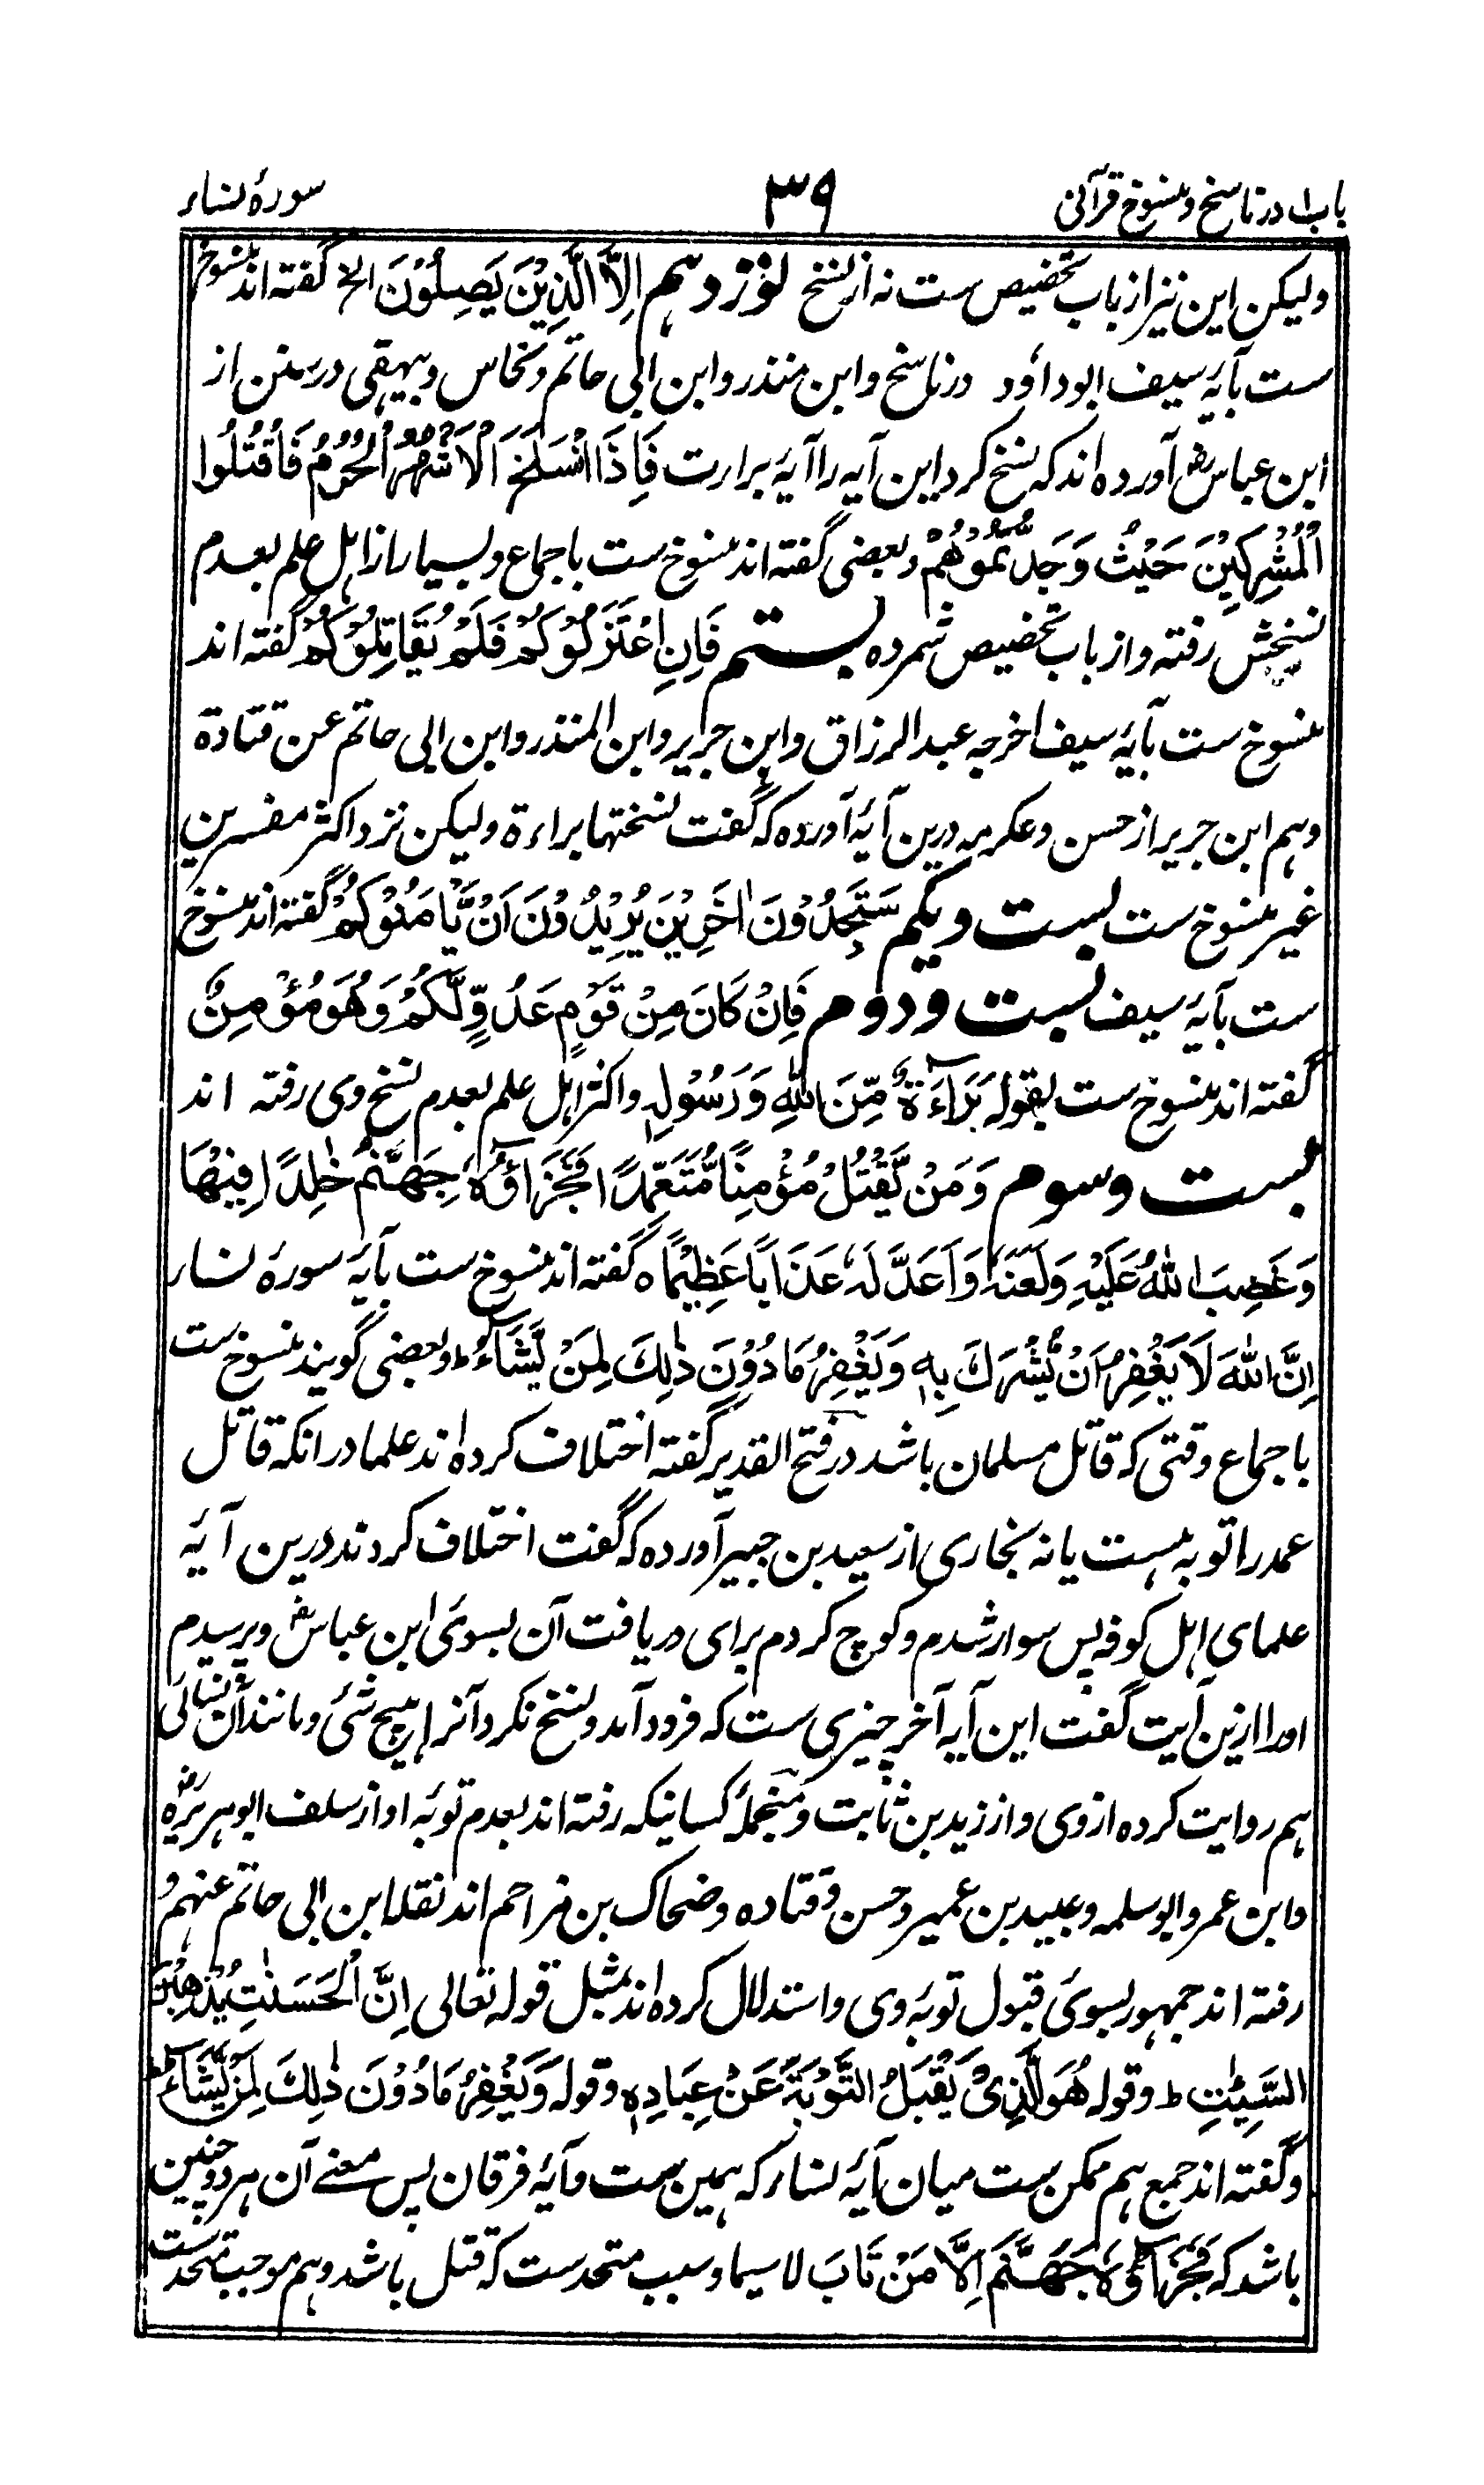 باب ۱ در ناسخ و منسوخ قرآنی ۳۹ سورۂ نساء
ولیکن این نیز از باب تخصیص ست نه از نسخ نوزدهم اِلَّا الَّذِيْنَ يَصِلُوْنَ الخ گفته اند منسوخ
ست بآیۂ سیف ابوداؤد در ناسخ و ابن منذر و ابن ابی حاتم و نحاس و بیهقی در سنن از
ابن عباس رض آورده اند که نسخ کرد این آیه را آیۂ براءت فَاِذَا انْسَلَخَ الْاَشْهُرُ الْحُرُمُ فَاقْتُلُوا
الْمُشْرِكِيْنَ حَيْثُ وَجَدْتُّمُوْهُمْ و بعضی گفته اند منسوخ ست باجماع و بسیار از اهل علم بعدم
نسخش رفته و از باب تخصیص شمرده بستم فَاِنِ اعْتَزَلُوْكُمْ فَلَمْ يُقَاتِلُوْكُمْ گفته اند
منسوخ ست بآیۂ سیف اخرجه عبد الرزاق و ابن جریر و ابن المنذر و ابن ابی حاتم عن قتادة
و هم ابن جریر از حسن و عکرمه درین آیۂ آورده که گفت نسختها براءة ولیکن نزد اکثر مفسرین
غیر منسوخ ست بست ویکم سَتَجِدُوْنَ اٰخَرِيْنَ يُرِيْدُوْنَ اَنْ يَّاْمَنُوْكُمْ گفته اند منسوخ
ست بآیۂ سیف بست و دوم فَاِنْ كَانَ مِنْ قَوْمٍ عَدُوٍّ لَّكُمْ وَهُوَ مُؤْمِنٌ
گفته اند منسوخ ست بقوله بَرَآءَةٌ مِّنَ اللّٰهِ وَرَسُوْلِهٖ و اکثر اهل علم بعدم نسخ وی رفته اند
بست وسوم وَمَنْ يَّقْتُلْ مُؤْمِنًا مُّتَعَمِّدًا فَجَزَآؤُهٗ جَهَنَّمُ خٰلِدًا فِيْهَا
وَغَضِبَ اللّٰهُ عَلَيْهِ وَلَعَنَهٗ وَاَعَدَّ لَهٗ عَذَابًا عَظِيْمًا ه گفته اند منسوخ ست بآیۂ سورۂ نساء
اِنَّ اللّٰهَ لَا يَغْفِرُ اَنْ يُّشْرَكَ بِهٖ وَيَغْفِرُ مَا دُوْنَ ذٰلِكَ لِمَنْ يَّشَآءُ ط و بعضی گویند منسوخ ست
باجماع وقتی که قاتل مسلمان باشد در فتح القدیر گفته اختلاف کرده اند علما در انکه قاتل
عمد را توبه هست یا نه بخاری از سعید بن جبیر آورده که گفت اختلاف کردند درین آیۂ
علمای اهل کوفه پس سوار شدم و کوچ کردم برای دریافت آن بسوئ ابن عباس رض و پرسیدم
اورا ازین آیت گفت این آیه آخر چیزی ست که فرود آمد و نسخ نکرد آنرا هیچ شئ و مانند آن نسائی
هم روایت کرده از وی و از زید بن ثابت و منجملۂ کسانیکه رفته اند بعدم توبۂ او از سلف ابو هریره رض
و ابن عمر و ابو سلمه و عبید بن عمیر و حسن و قتاده و ضحاک بن مزاحم اند نقله ابن ابی حاتم عنهم و
رفته اند جمهور بسوئ قبول توبۂ وی و استدلال کرده اند بمثل قوله تعالی اِنَّ الْحَسَنٰتِ يُذْهِبْنَ
السَّيِّاٰتِ ط و قوله هُوَ الَّذِىْ يَقْبَلُ التَّوْبَةَ عَنْ عِبَادِهٖ و قوله وَيَغْفِرُ مَا دُوْنَ ذٰلِكَ لِمَنْ يَّشَآءُ ط
و گفته اند جمع هم ممکن ست میان آیۂ نساء که همین ست و آیۂ فرقان پس معنے آن هر دو چنین
باشد که فَجَزَآؤُهٗ جَهَنَّمُ اِلَّا مَنْ تَابَ لا سیما و سبب متحد ست که قتل باشد و هم موجب متحد ست